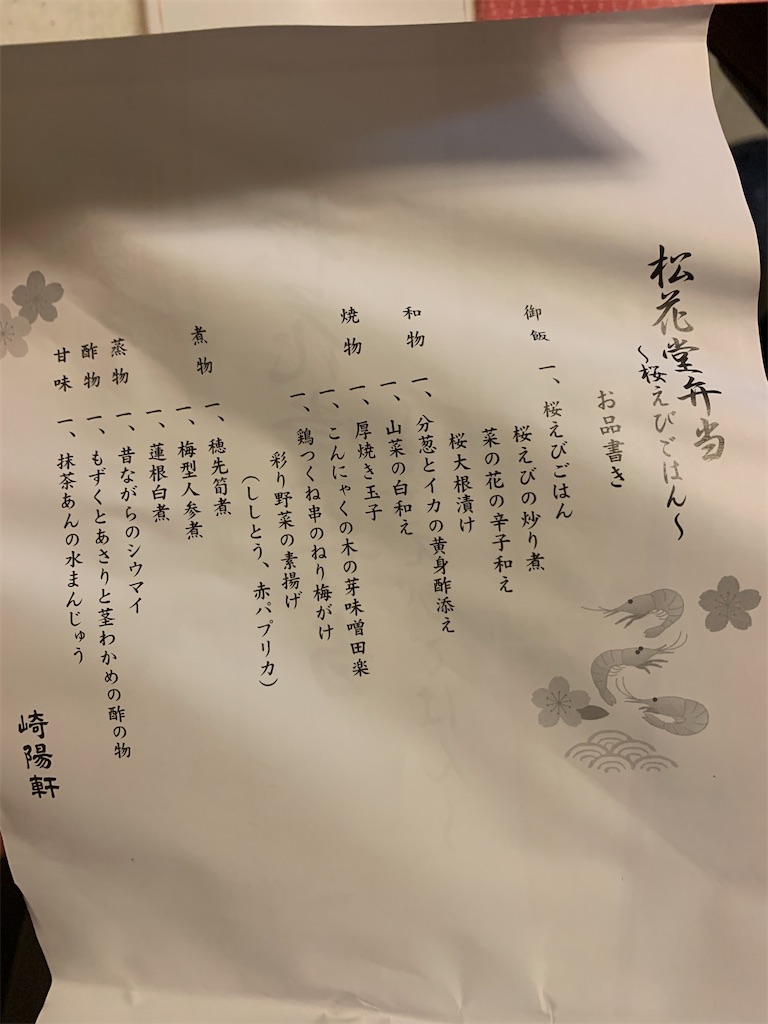 松花堂弁当
〜桜えびごはん〜
お品書き
御飯 一、桜えびごはん
桜えびの炒り煮
菜の花の辛子和え
桜大根漬け
和物 一、分葱とイカの黄身酢添え
一、山菜の白和え
焼物 一、厚焼き玉子
一、こんにゃくの木の芽味噌田楽
一、鶏つくね串のねり梅がけ
彩り野菜の素揚げ
（ししとう、赤パプリカ）
煮物 一、穂先筍煮
一、梅型人参煮
一、蓮根白煮
蒸物 一、昔ながらのシウマイ
酢物 一、もずくとあさりと茎わかめの酢の物
甘味 一、抹茶あんの水まんじゅう
崎陽軒